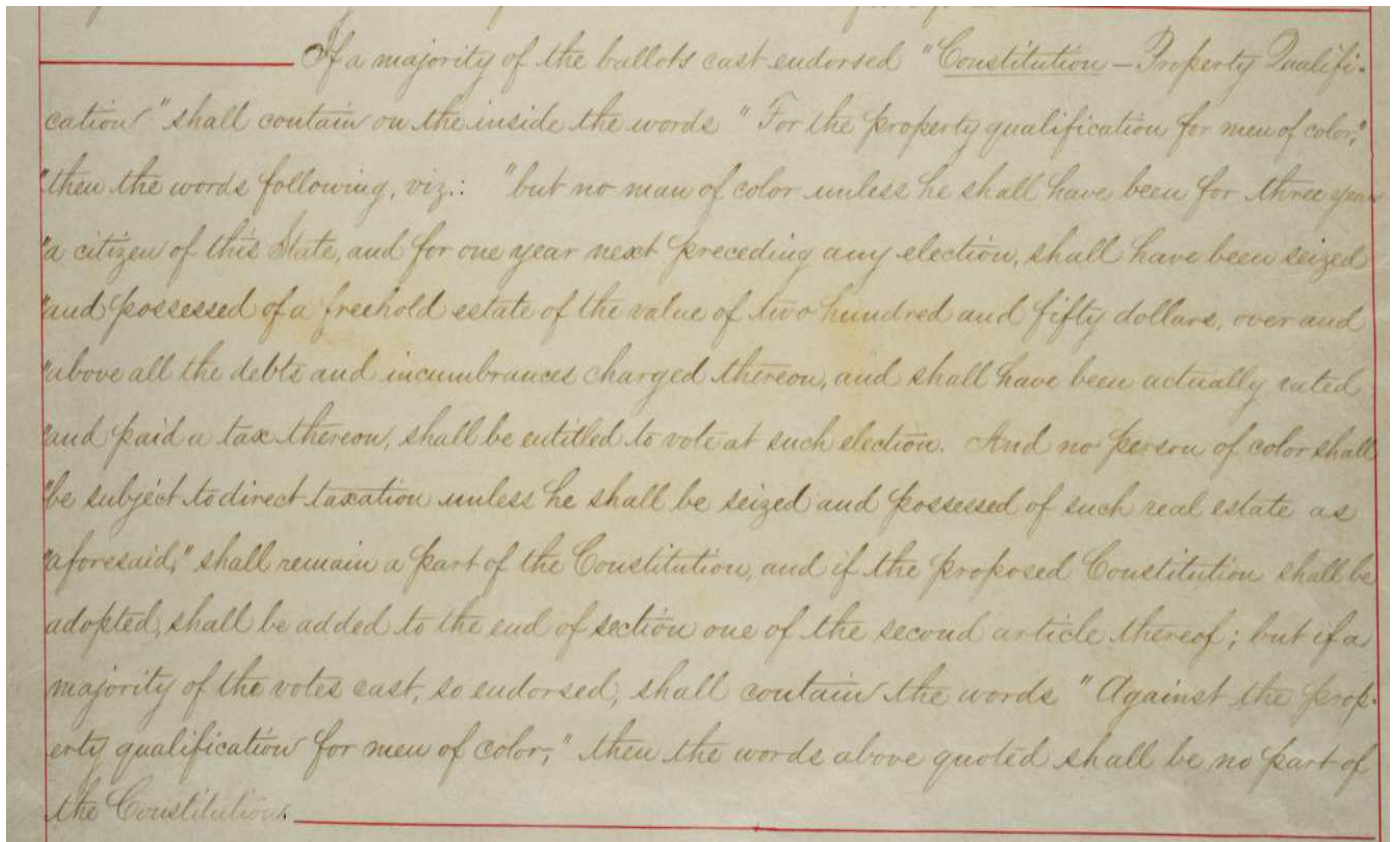 If a majority of the ballots cast endorsed "Constitution – Property Qualifi-
cation" shall contain on the inside the words "For the property qualification for men of color,"
"then the words following, viz.: "but no man of color unless he shall have been for three years
"a citizen of this State, and for one year next preceding any election, shall have been seized
"and possessed of a freehold estate of the value of two hundred and fifty dollars, over and
"above all the debts and incumbrances charged thereon, and shall have been actually rated
"and paid a tax thereon, shall be entitled to vote at such election. And no person of color shall
"be subject to direct taxation unless he shall be seized and possessed of such real estate as
"aforesaid," shall remain a part of the Constitution, and if the proposed Constitution shall be
adopted, shall be added to the end of section one of the second article thereof; but if a
majority of the votes cast, so endorsed, shall contain the words "Against the prop-
erty qualification for men of color," then the words above quoted shall be no part of
the Constitution.